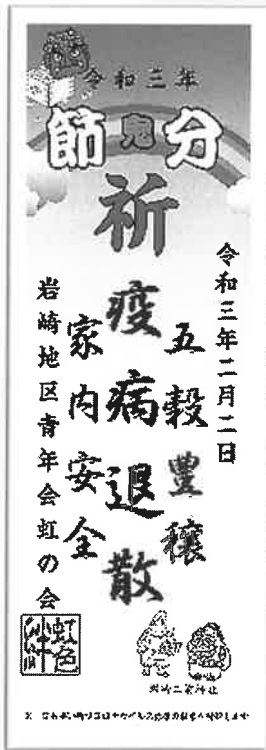 令和三年
節鬼分
祈
令和三年二月二日
五穀豊穣
疫病退散
家内安全
岩崎地区青年会虹の会
虹色